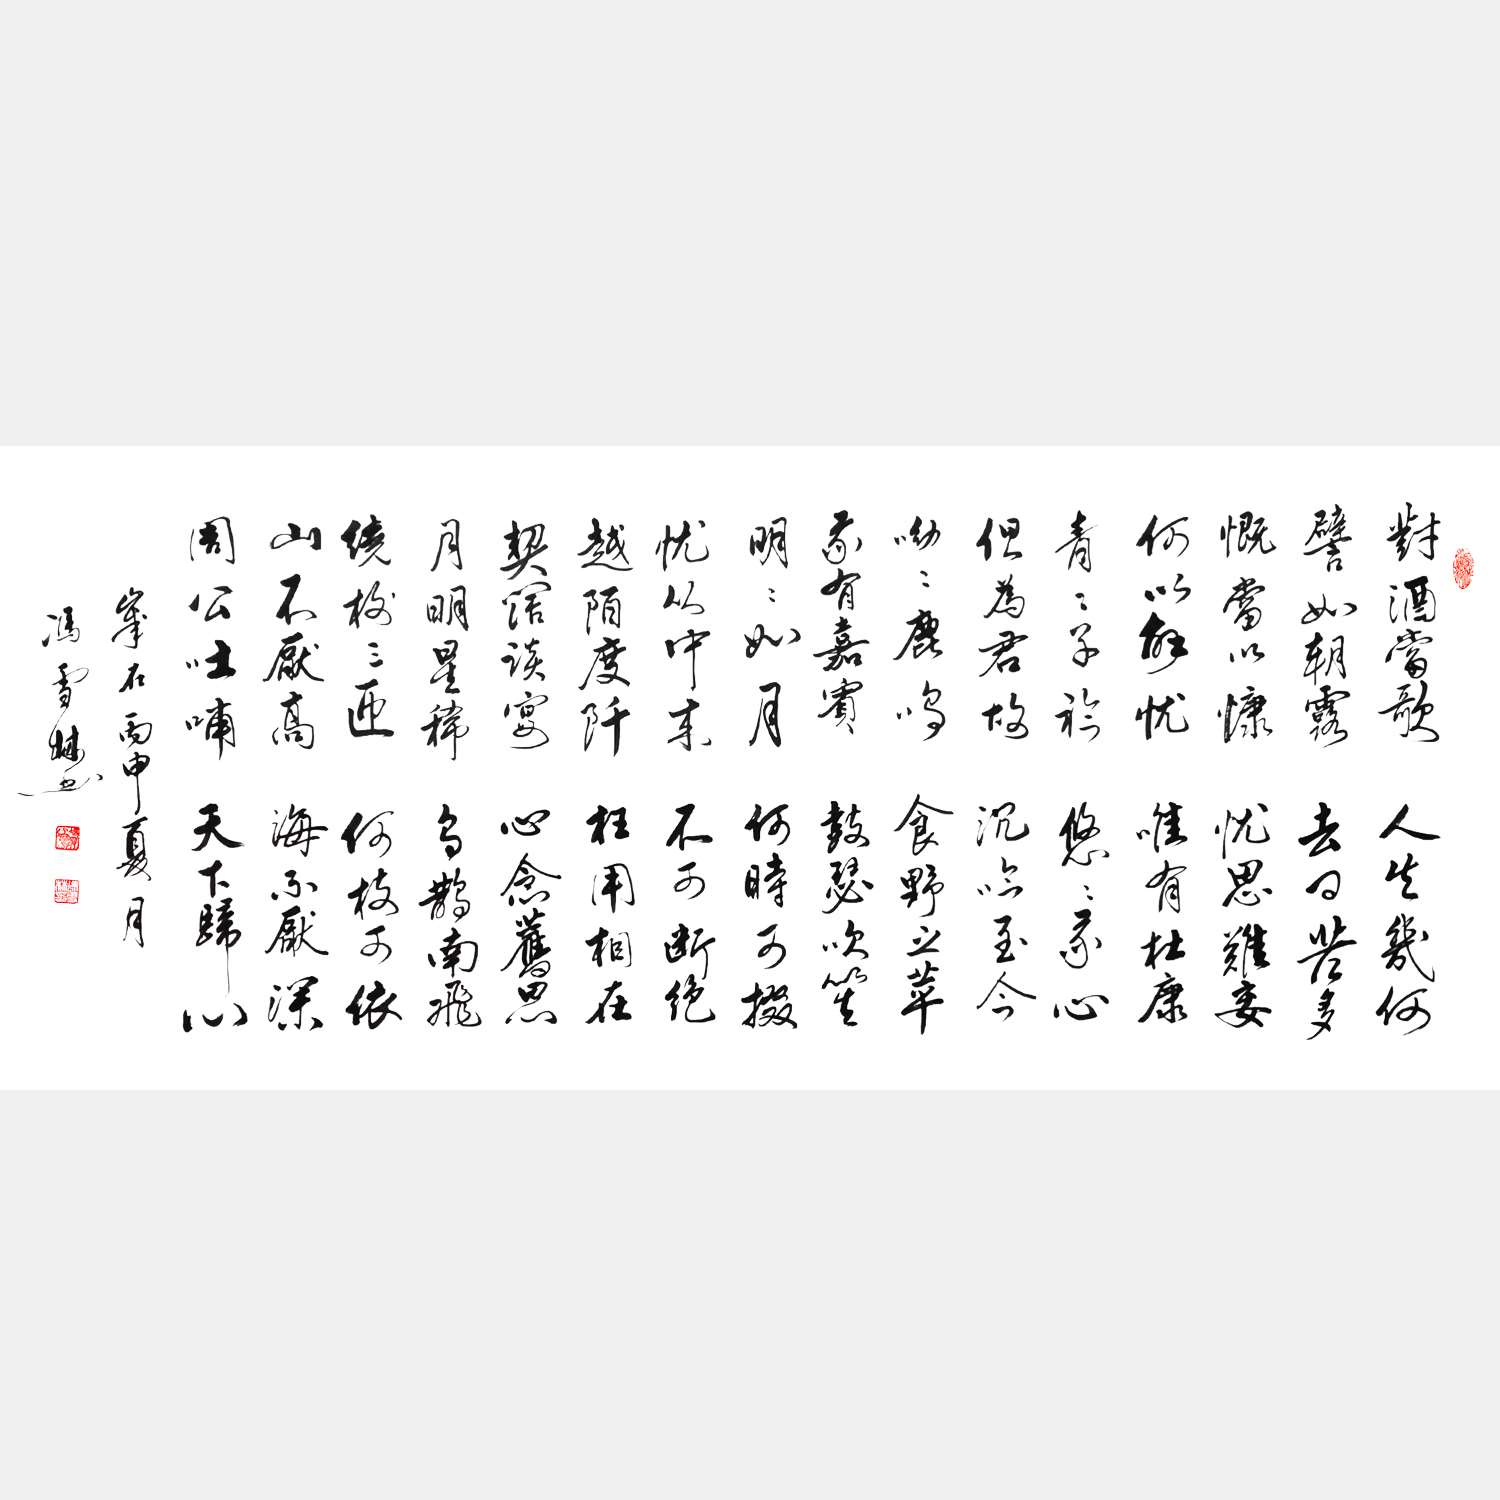 對酒當歌 人生幾何
譬如朝露 去日苦多
慨當以慷 忧思難忘
何以解忧 唯有杜康
青々子衿 悠々我心
但為君故 沉吟至今
呦々鹿鸣 食野之苹
我有嘉賓 鼓瑟吹笙
明々如月 何時可掇
忧从中来 不可断绝
越陌度阡 枉用相存
契阔谈宴 心念舊恩
月明星稀 乌鹊南飛
绕树三匝 何枝可依
山不厭高 海不厭深
周公吐哺 天下歸心
歲在丙申夏月
冯雪书